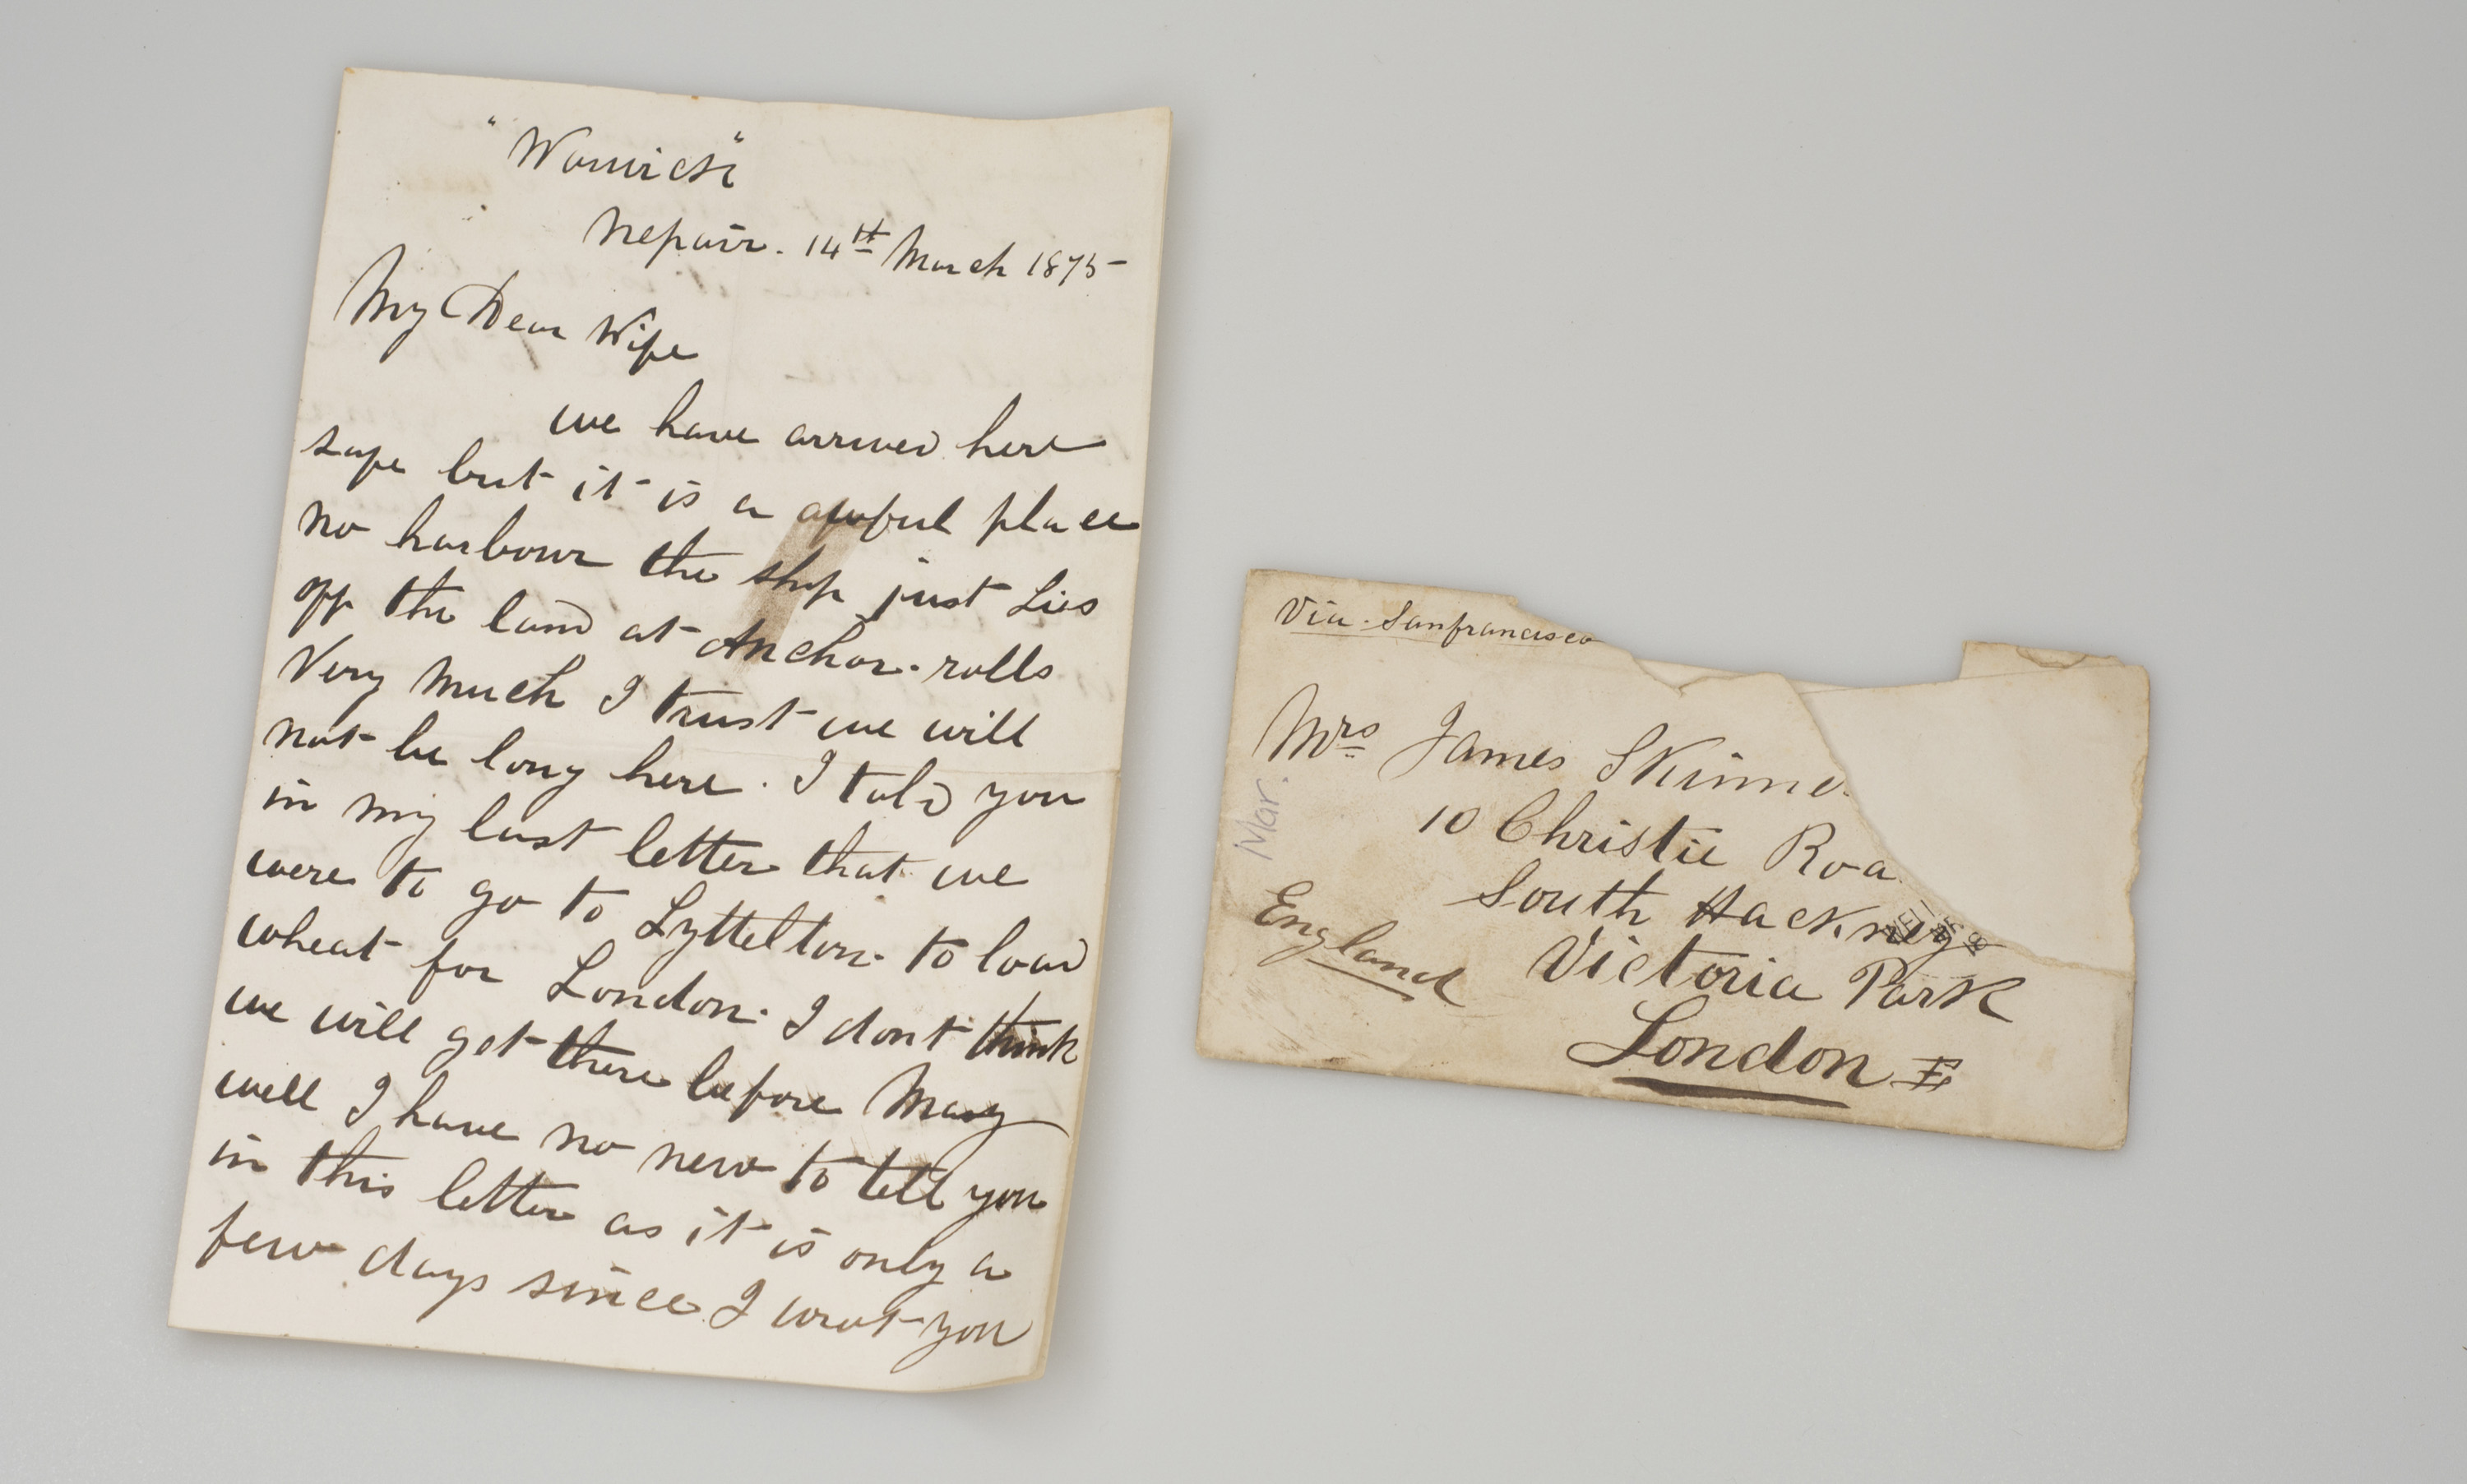 "Warwick"
Nepair. 14th March 1875
My Dear Wife
we have arrived here
safe but it is a awful place
no harbour the ship just Lies
off the land at Anchor. rolls
Very Much I trust we will
not be long here. I told you
in my last letter that we
were to go to Lyttelton. to load
wheat for London. I dont think
we will get there before May
well I have no new to tell you
in this letter as it is only a
few days since I wrot you
Via. Sanfrancisco
Mrs James Skinne
10 Christie Roa
South Hackney
Victoria Park
London E
England
Mar.